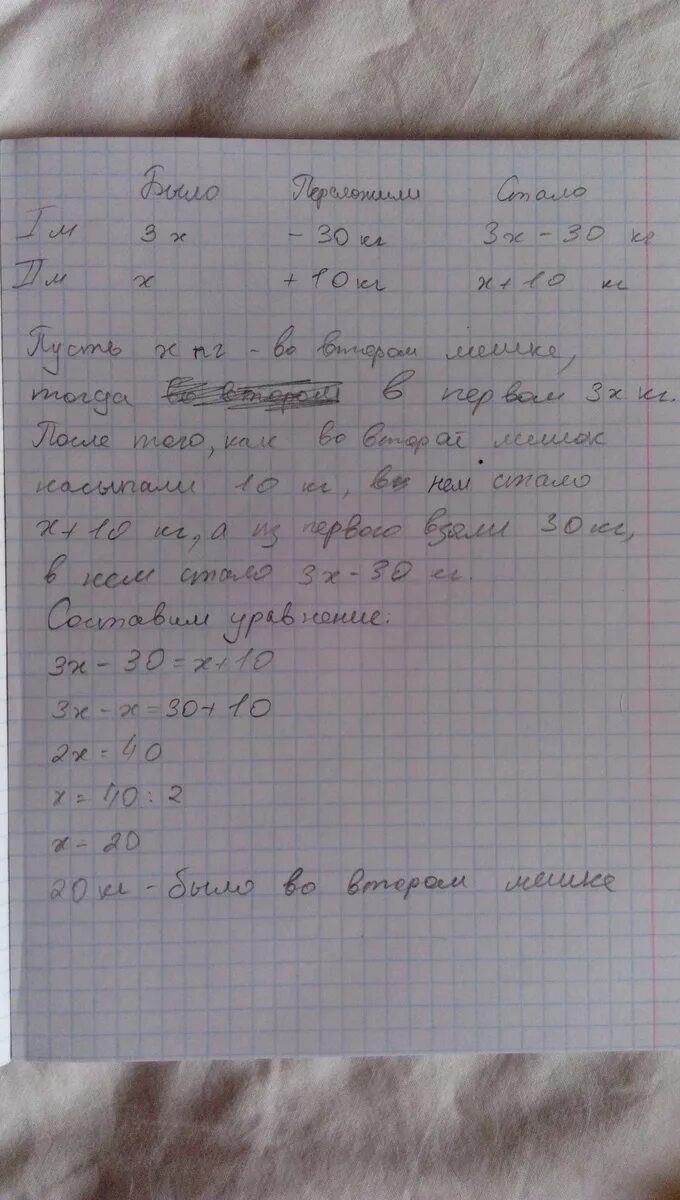 Было Переложили Стало
I м 3х - 30 кг 3х - 30 кг
II м х + 10 кг х + 10 кг
Пусть х кг - во втором мешке,
тогда в первом 3х кг.
После того, как во второй мешок
насыпали 10 кг, в нем стало
х + 10 кг, а из первого взяли 30 кг,
в нем стало 3х - 30 кг.
Составим уравнение:
3х - 30 = х + 10
3х - х = 30 + 10
2х = 40
х = 40 : 2
х = 20
20 кг - было во втором мешке